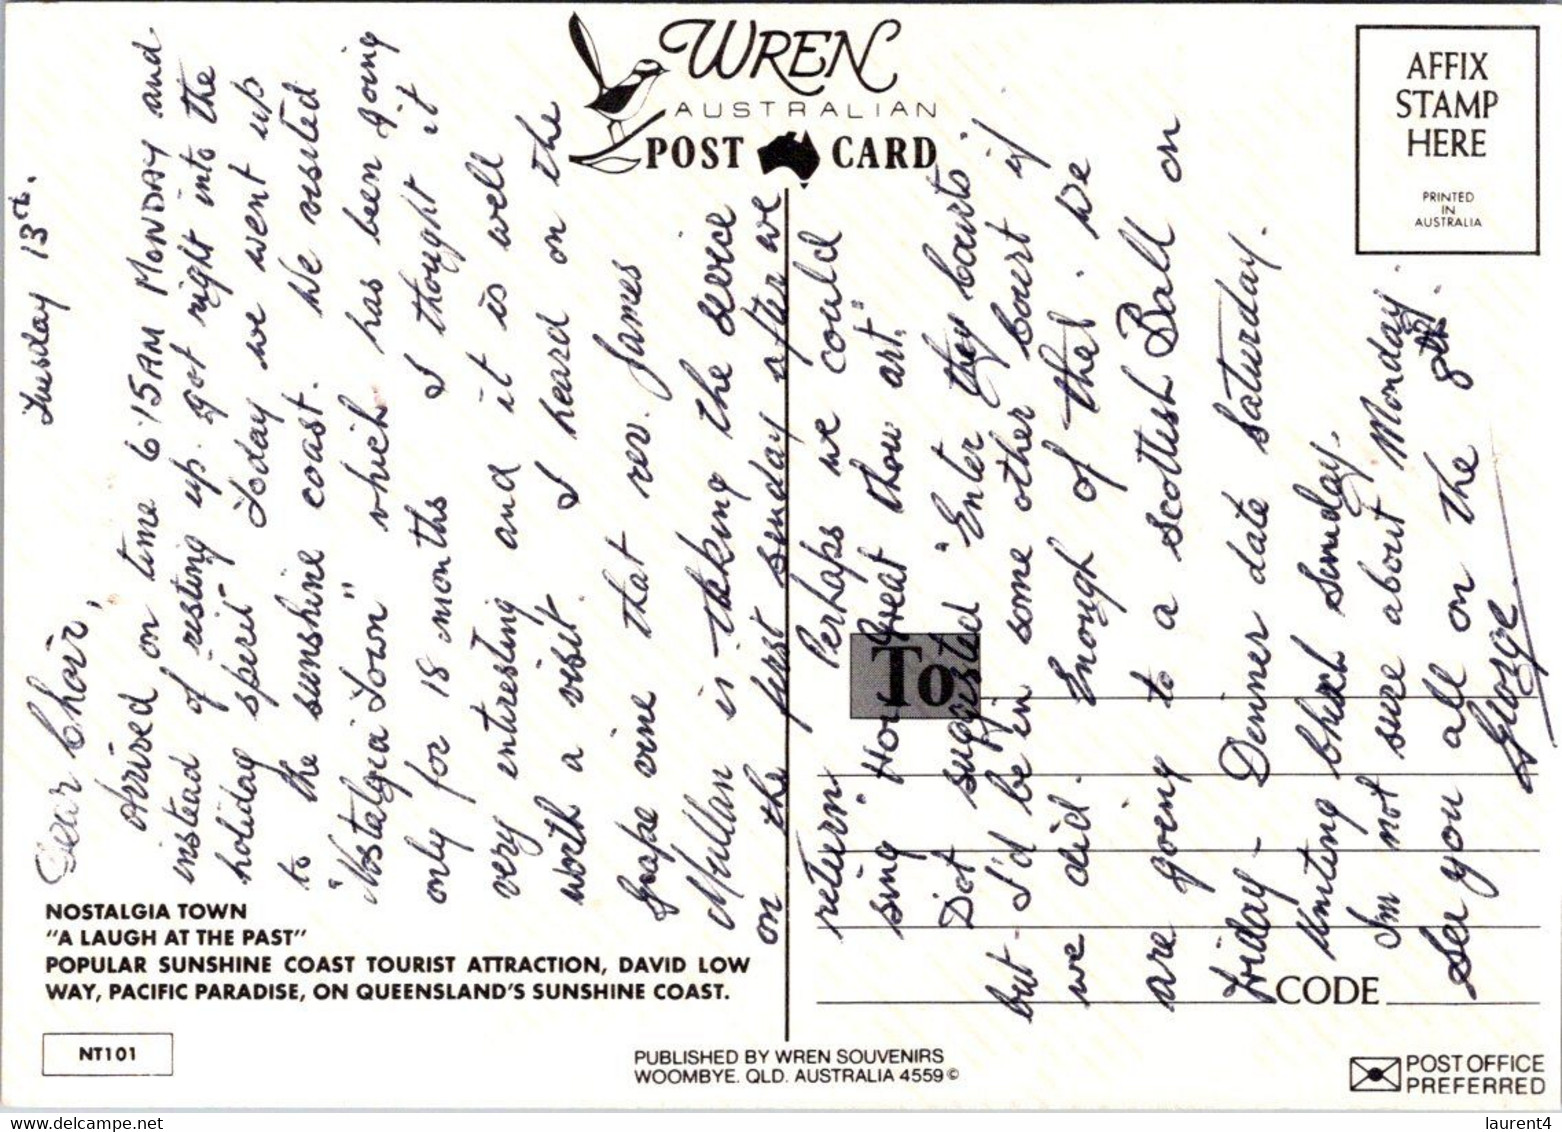 WREN
AUSTRALIAN
POST CARD
AFFIX
STAMP
HERE
PRINTED
IN
AUSTRALIA
Tuesday 13th.
Dear Choir,
Arrived on time 6.15AM MONDAY and
instead of resting up. got right into the
holiday spirit" Today we went up
to the sunshine coast. We visited
"Nostalgia Town" which has been going
only for 18 months I thought it
very enteresting and it is well
worth a visit. I heard on the
grape vine that rev. James
Mullan is taking the service
on the first sunday after we
return" Perhaps we could
sing "How Great thou art."
Dot sugisted "Enter they courts"
but I'd be in some other court if
we did. Enough of that. We
are going to a Scottish Ball on
Friday - Denner date saturday.
Uniting Church Sunday.
I'm not sure about Monday.
See you all on the 8th.
George
To
CODE
NOSTALGIA TOWN
"A LAUGH AT THE PAST"
POPULAR SUNSHINE COAST TOURIST ATTRACTION, DAVID LOW
WAY, PACIFIC PARADISE, ON QUEENSLAND'S SUNSHINE COAST.
NT101
PUBLISHED BY WREN SOUVENIRS
WOOMBYE. QLD. AUSTRALIA 4559 ©
POST OFFICE
PREFERRED
laurent4